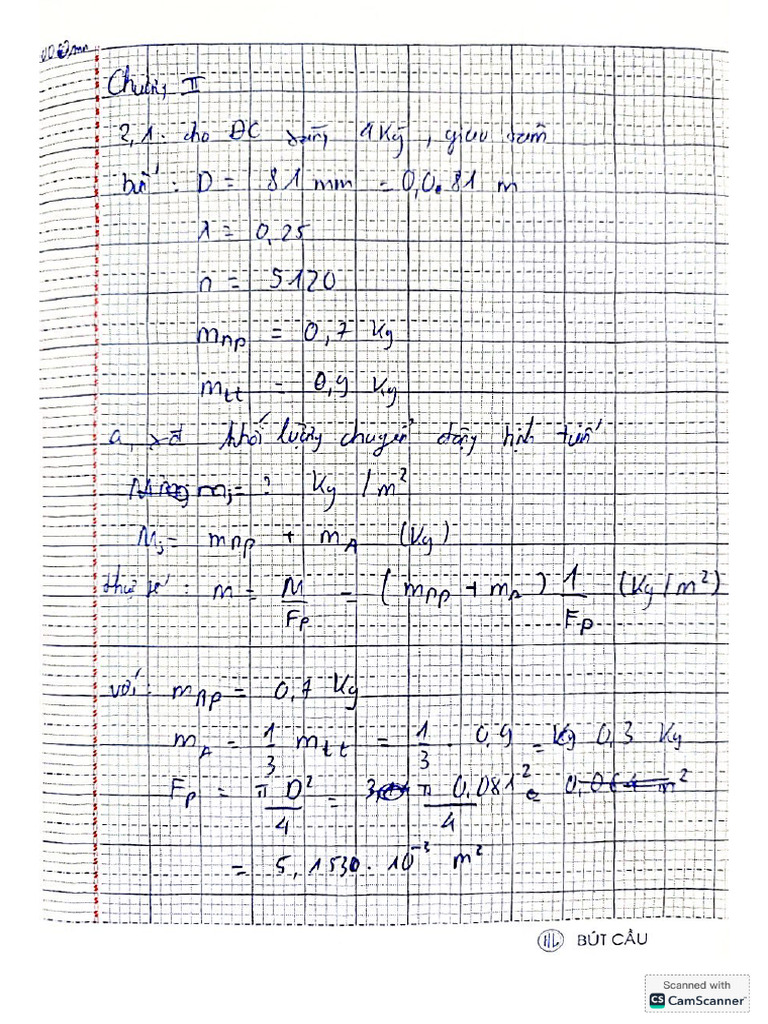 Chương II
2,1. cho ĐC xăng 4 Kỳ, giao tâm
biết : D = 81 mm = 0,0.81 m
λ = 0,25
n = 5120
mnp = 0,7 Kg
mtt = 0,9 Kg
a, xđ khối lượng chuyển động tịnh tiến
mj = ? Kg /m²
Mj = mnp + mA (Kg)
thực tế : m = M/Fp = (mnp + mA) 1/Fp (Kg/m²)
với : mnp = 0,7 Kg
mA = 1/3 mtt = 1/3 . 0,9 = Kg 0,3 Kg
Fp = π D²/4 = π 0,081²/4
= 5,1530. 10⁻³ m²
BÚT CẦU
Scanned with
CS CamScanner